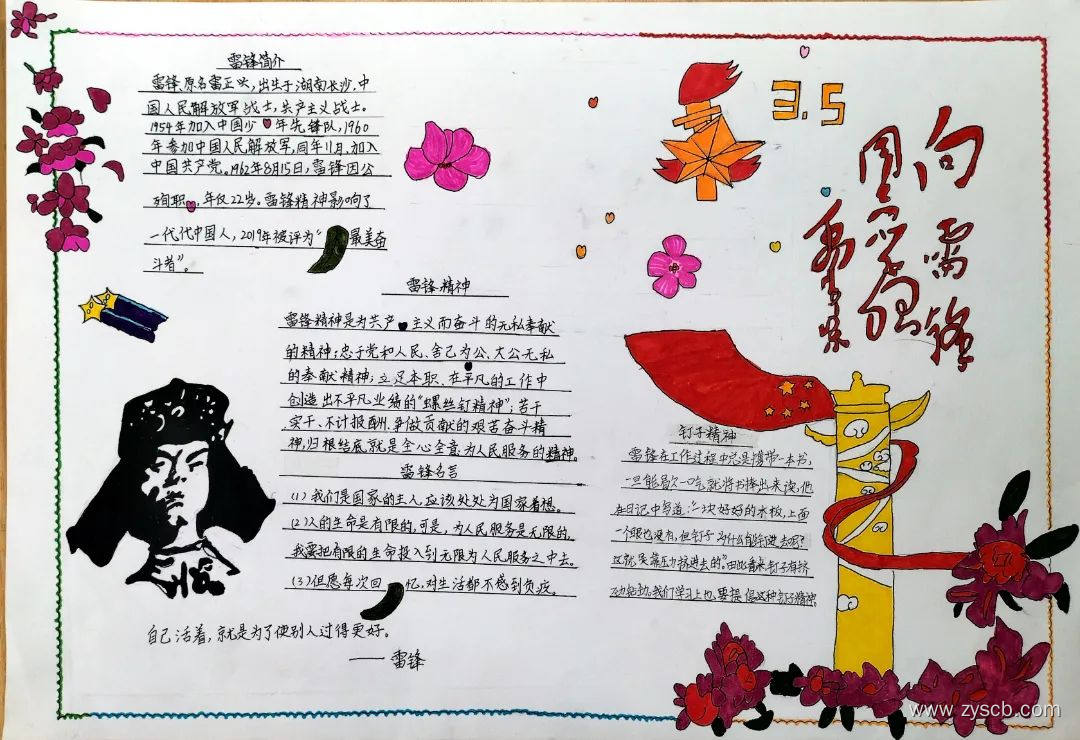 雷锋简介
雷锋,原名雷正兴,出生于湖南长沙,中
国人民解放军战士,共产主义战士。
1954年加入中国少年先锋队,1960
年参加中国人民解放军,同年11月,加入
中国共产党。1962年8月15日,雷锋因公
殉职,年仅22岁。雷锋精神影响了
一代代中国人,2019年被评为“最美奋
斗者”。
雷锋精神
雷锋精神是为共产主义而奋斗的无私奉献
的精神;忠于党和人民、舍己为公、大公无私
的奉献精神;立足本职、在平凡的工作中
创造出不平凡业绩的“螺丝钉精神”;苦干
实干、不计报酬、争做贡献的艰苦奋斗精
神,归根结底就是全心全意为人民服务的精神。
雷锋名言
(1)我们是国家的主人,应该处处为国家着想。
(2)人的生命是有限的,可是,为人民服务是无限的,
我要把有限的生命投入到无限为人民服务之中去。
(3)但愿每次回忆,对生活都不感到负疚。
自己活着,就是为了使别人过得更好。
——雷锋
3.5
向雷锋
钉子精神
雷锋在工作过程中总是携带一本书,
一旦能易欠一口气就将书捧出来读,他
在日记中写道:“一块好好的木板,上面
一个眼也没有,但钉子为什么能钉进去呢?
这就是靠压力挤进去的。”由此看来,钉子有挤
劲和钻劲,我们学习上也要提倡这种钉子精神。
www.zyscb.com